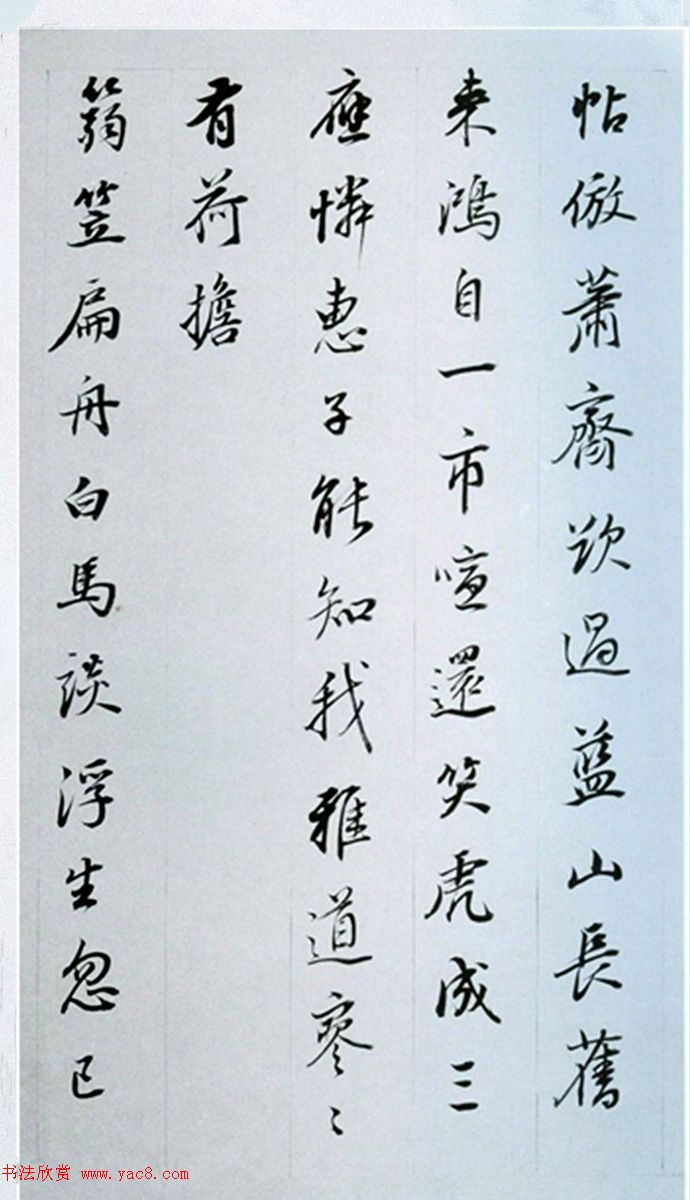 帖倣蕭齋欲過藍山長舊
來鴻自一市喧還笑虎成三
應憐惠子能知我雅道寥〻
有荷擔
篛笠扁舟白馬談浮生忽已
书法欣赏 www.yac8.com